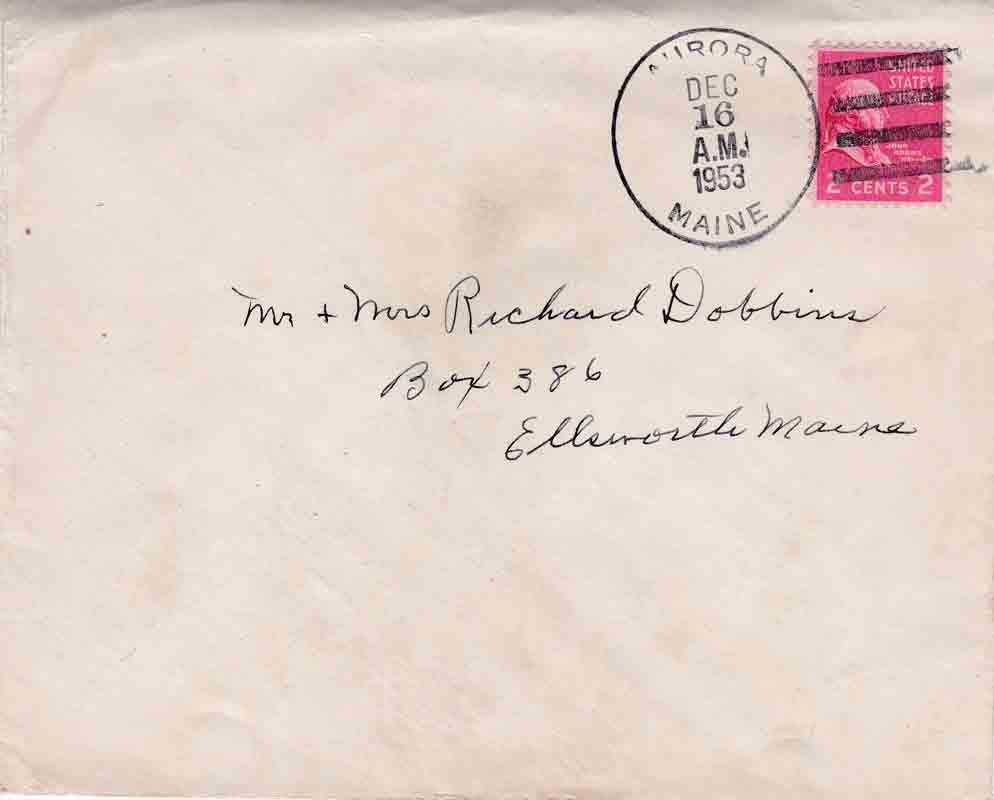 AURORA
DEC
16
A.M.
1953
MAINE
UNITED
STATES
JOHN
ADAMS
2 CENTS 2
Mr + Mrs Richard Dobbins
Box 386
Ellsworth Maine